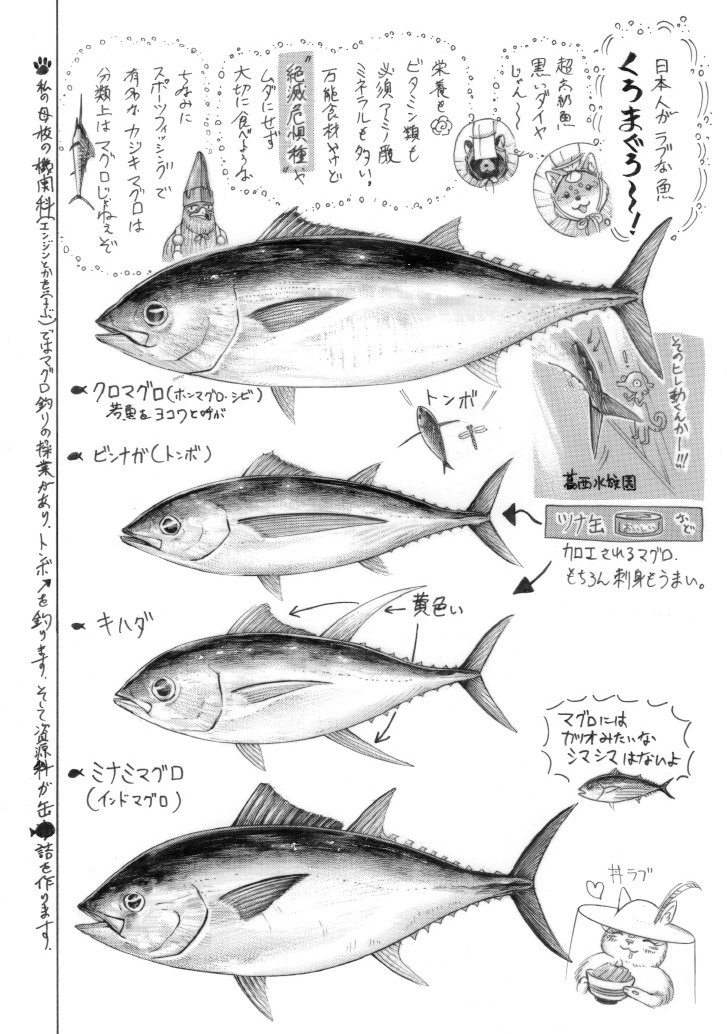 日本人がラブな魚
くろまぐろ〜〜！
超高級魚
黒いダイヤ
じゃん〜〜
栄養も
ビタミン類も
必須アミノ酸
ミネラルも多い。
万能食材やけど
"絶滅危惧種"や
ムダにせず
大切に食べような
ちなみに
スポーツフィッシングで
有名な カジキマグロは
分類上は マグロじゃねぇぞ
クロマグロ(ホンマグロ・シビ)
若魚をヨコワと呼ぶ
トンボ
そのヒレ動くんかー!!!
葛西水族園
ビンナガ(トンボ)
ツナ缶
おいしい
など
加工されるマグロ.
もちろん刺身もうまい。
キハダ
黄色い
マグロには
カツオみたいな
シマシマはないよ
ミナミマグロ
(インドマグロ)
丼ラブ
私の母校の機関科(エンジンとかをまなぶ)ではマグロ釣りの操業があり、トンボを釣ります。そして資源科が缶詰を作ります.